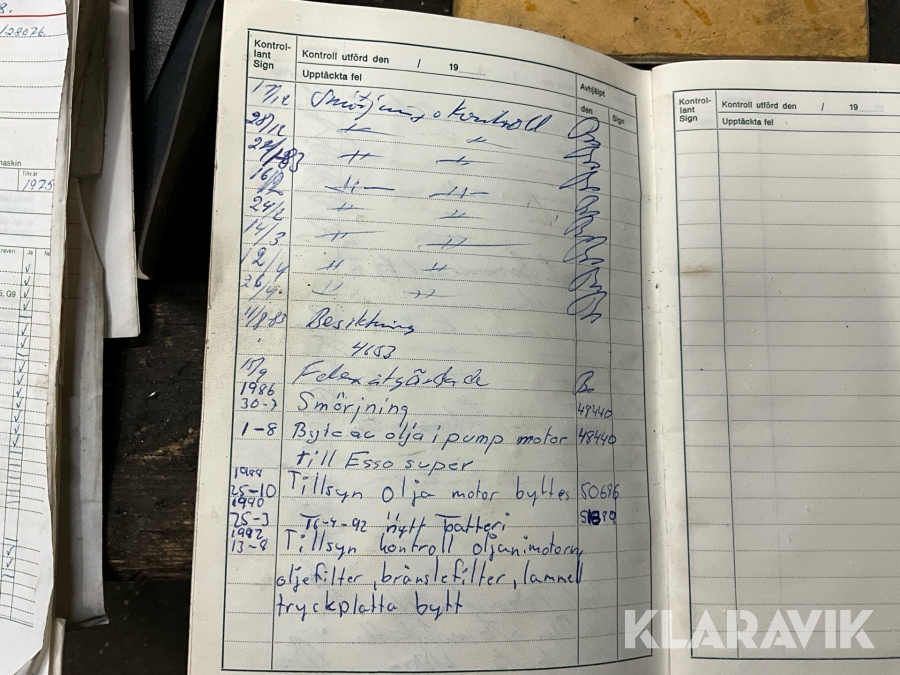 8.
128076
maskin
Tillv.år
1925
raven Ja Ne
5, G9
Kontrol-
lant
Sign
Kontroll utförd den / 19
Upptäckta fel
Avhjälpt
den Sign
17/12 Smörjning o Kontroll
28/12 -"- -"-
-"- -"-
16/2 -"- -"-
24/2 -"- -"-
14/3 -"- -"-
12/4 -"- -"-
26/4 -"- -"-
11/8 83 Besiktning
4153
15/9 Felen åtgärdade
1986
30-7 Smörjning 48440
1-8 Byte av olja i pump motor 48440
till Esso super
25-10 Tillsyn olja motor byttes 50696
1990
25-3 16-4-92 nytt batteri
1992
13-8 Tillsyn kontroll oljan i motorn
oljefilter, bränslefilter, lamell
tryckplatta bytt
Kontrol-
lant
Sign
Kontroll utförd den / 19
Upptäckta fel
KLARAVIK